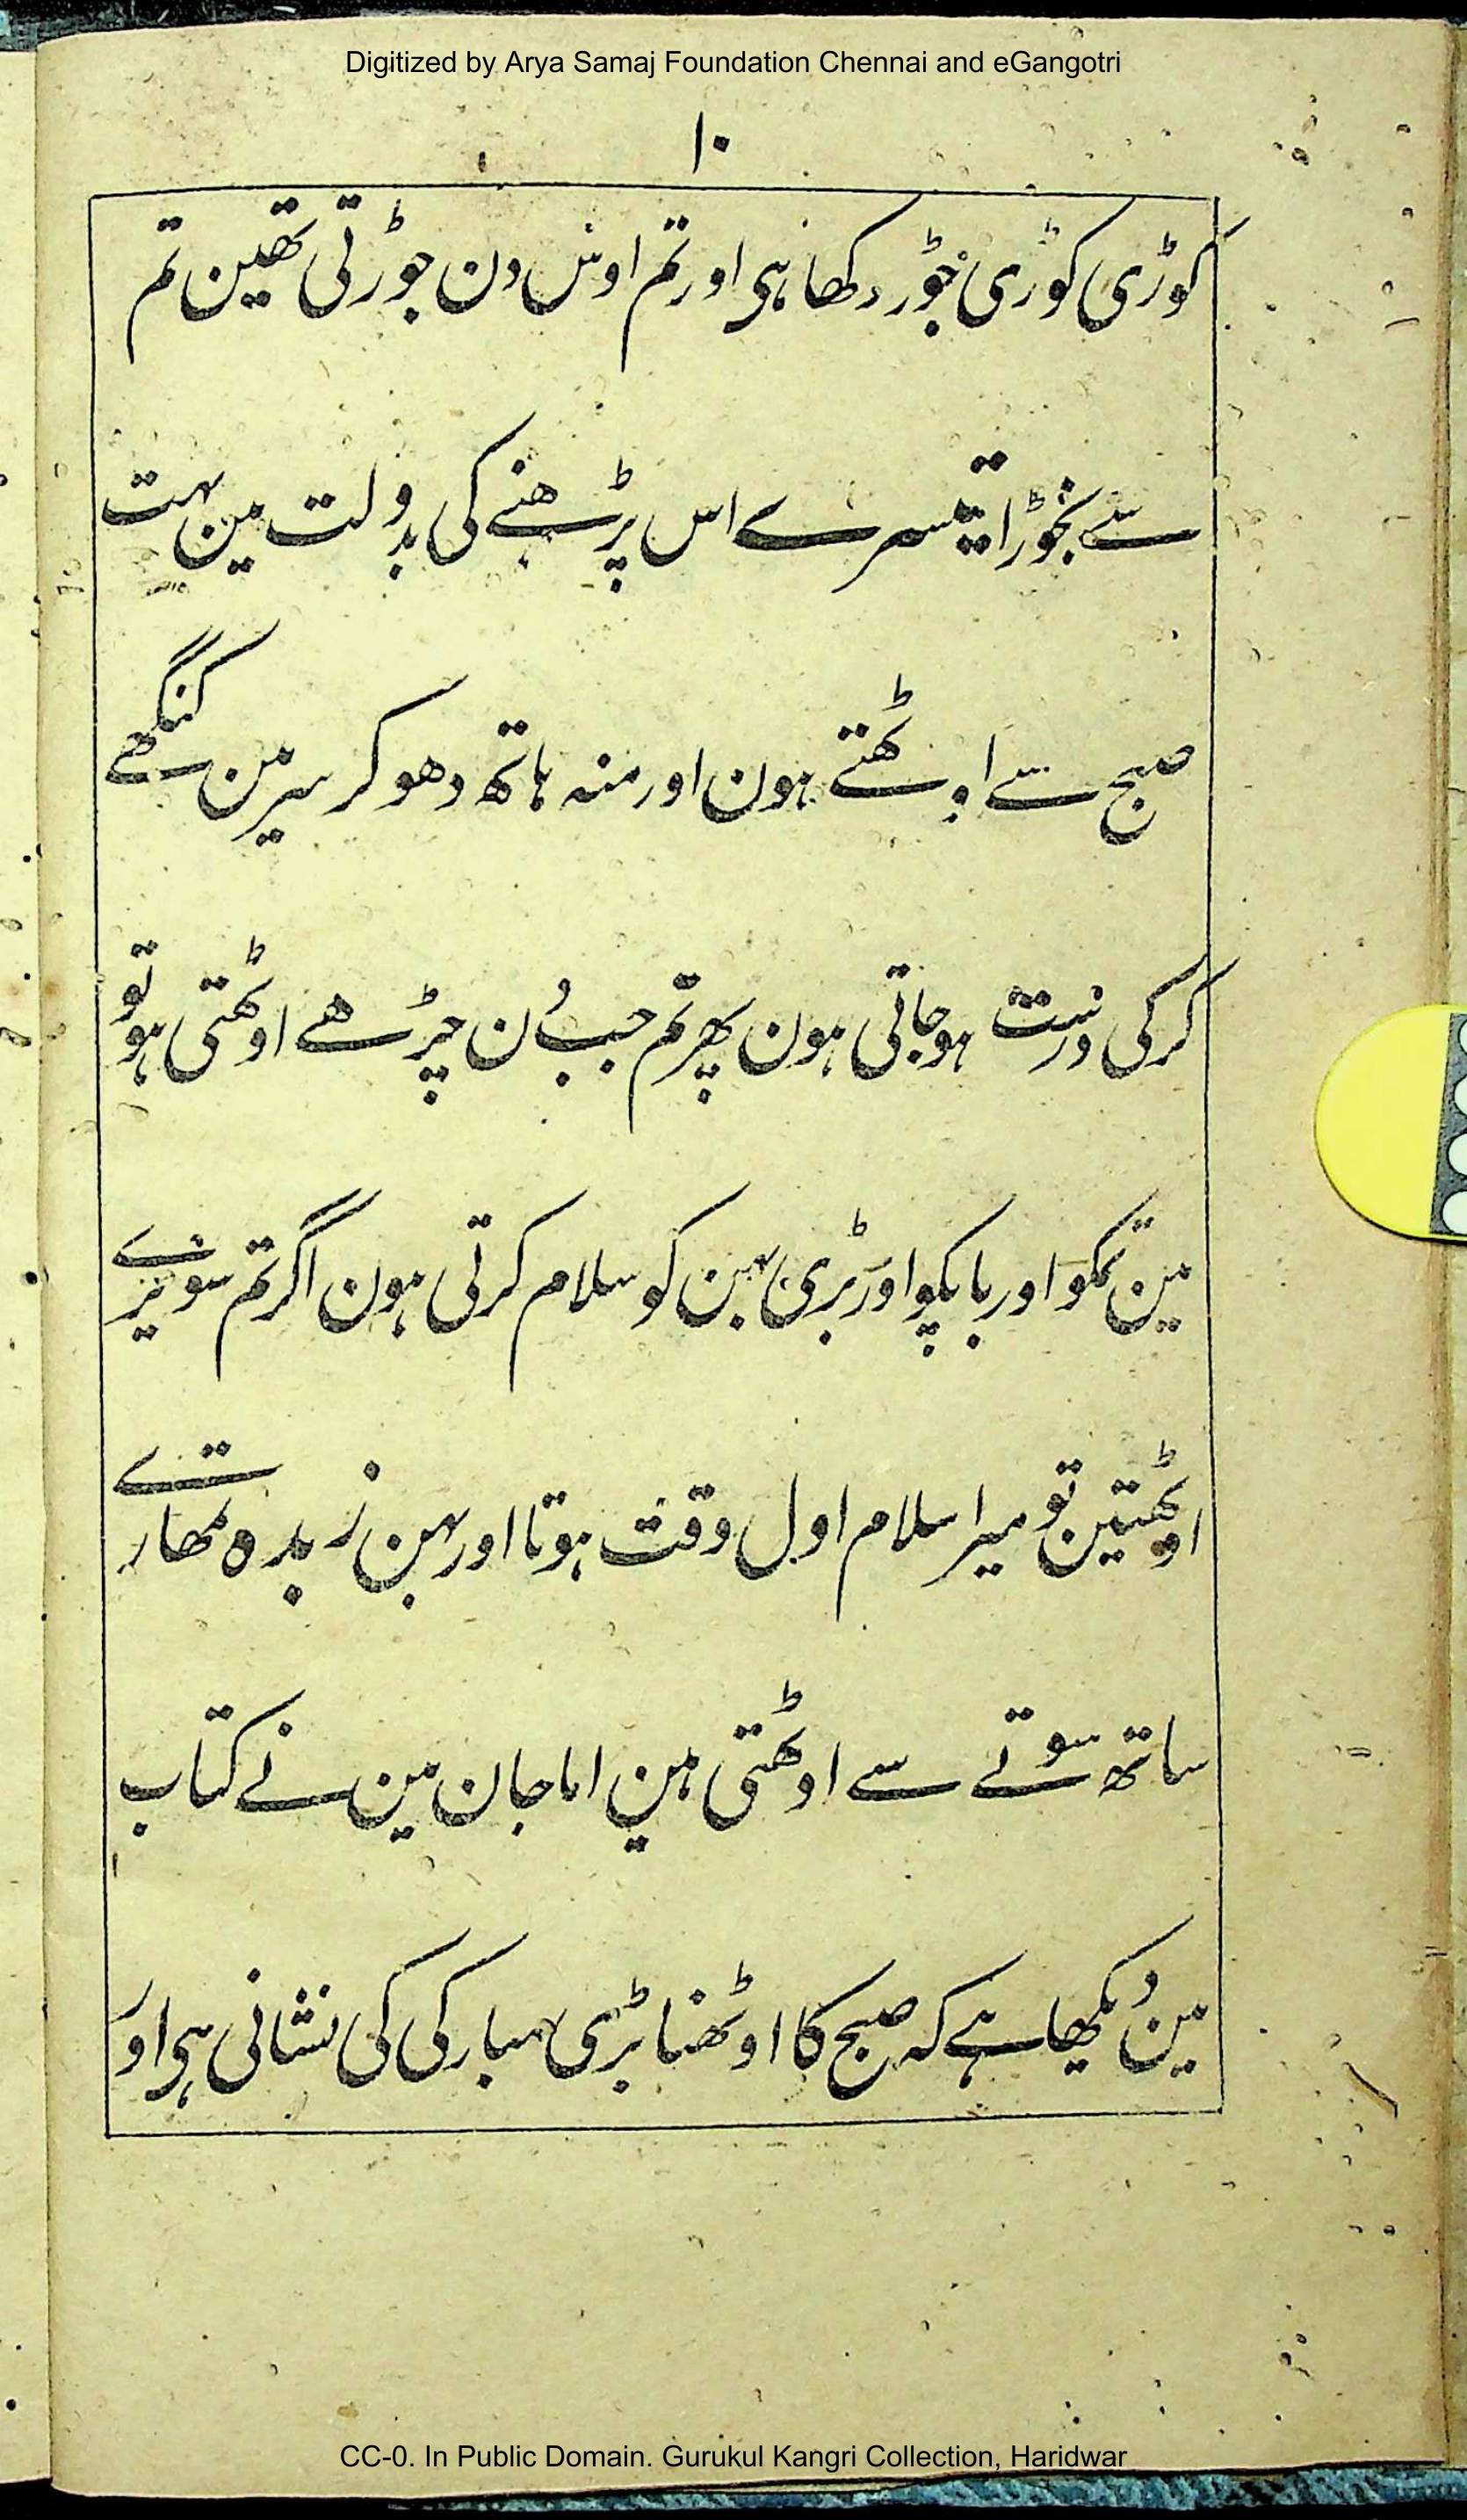 Digitized by Arya Samaj Foundation Chennai and eGangotri
۱۰
کوڑی کوڑی جوڑ رکھا ہی اور تم اوس دن جوڑتی تھین تم
سے نجوڑا تیسرے اس پڑھنے کی بدولت مین بہت
صبح سے اوٹھتے ہون اور منہ ہاتھ دھو کر سر مین کنگھے
کر کی درست ہو جاتی ہون پھر تم جب دن چڑھے اوٹھتی ہو تو
مین تمکو اور باپکو اور بڑی بہن کو سلام کرتی ہون اگر تم سویرے
اوٹھتین تو میرا سلام اول وقت ہوتا اور بہن زبدہ تمھارے
ساتھ سوتے سے اوٹھتی ہین اما جان مین نے کتاب
مین دیکھا ہے کہ صبح کا اوٹھنا بڑی مبارکی کی نشانی ہی اور
CC-0. In Public Domain. Gurukul Kangri Collection, Haridwar